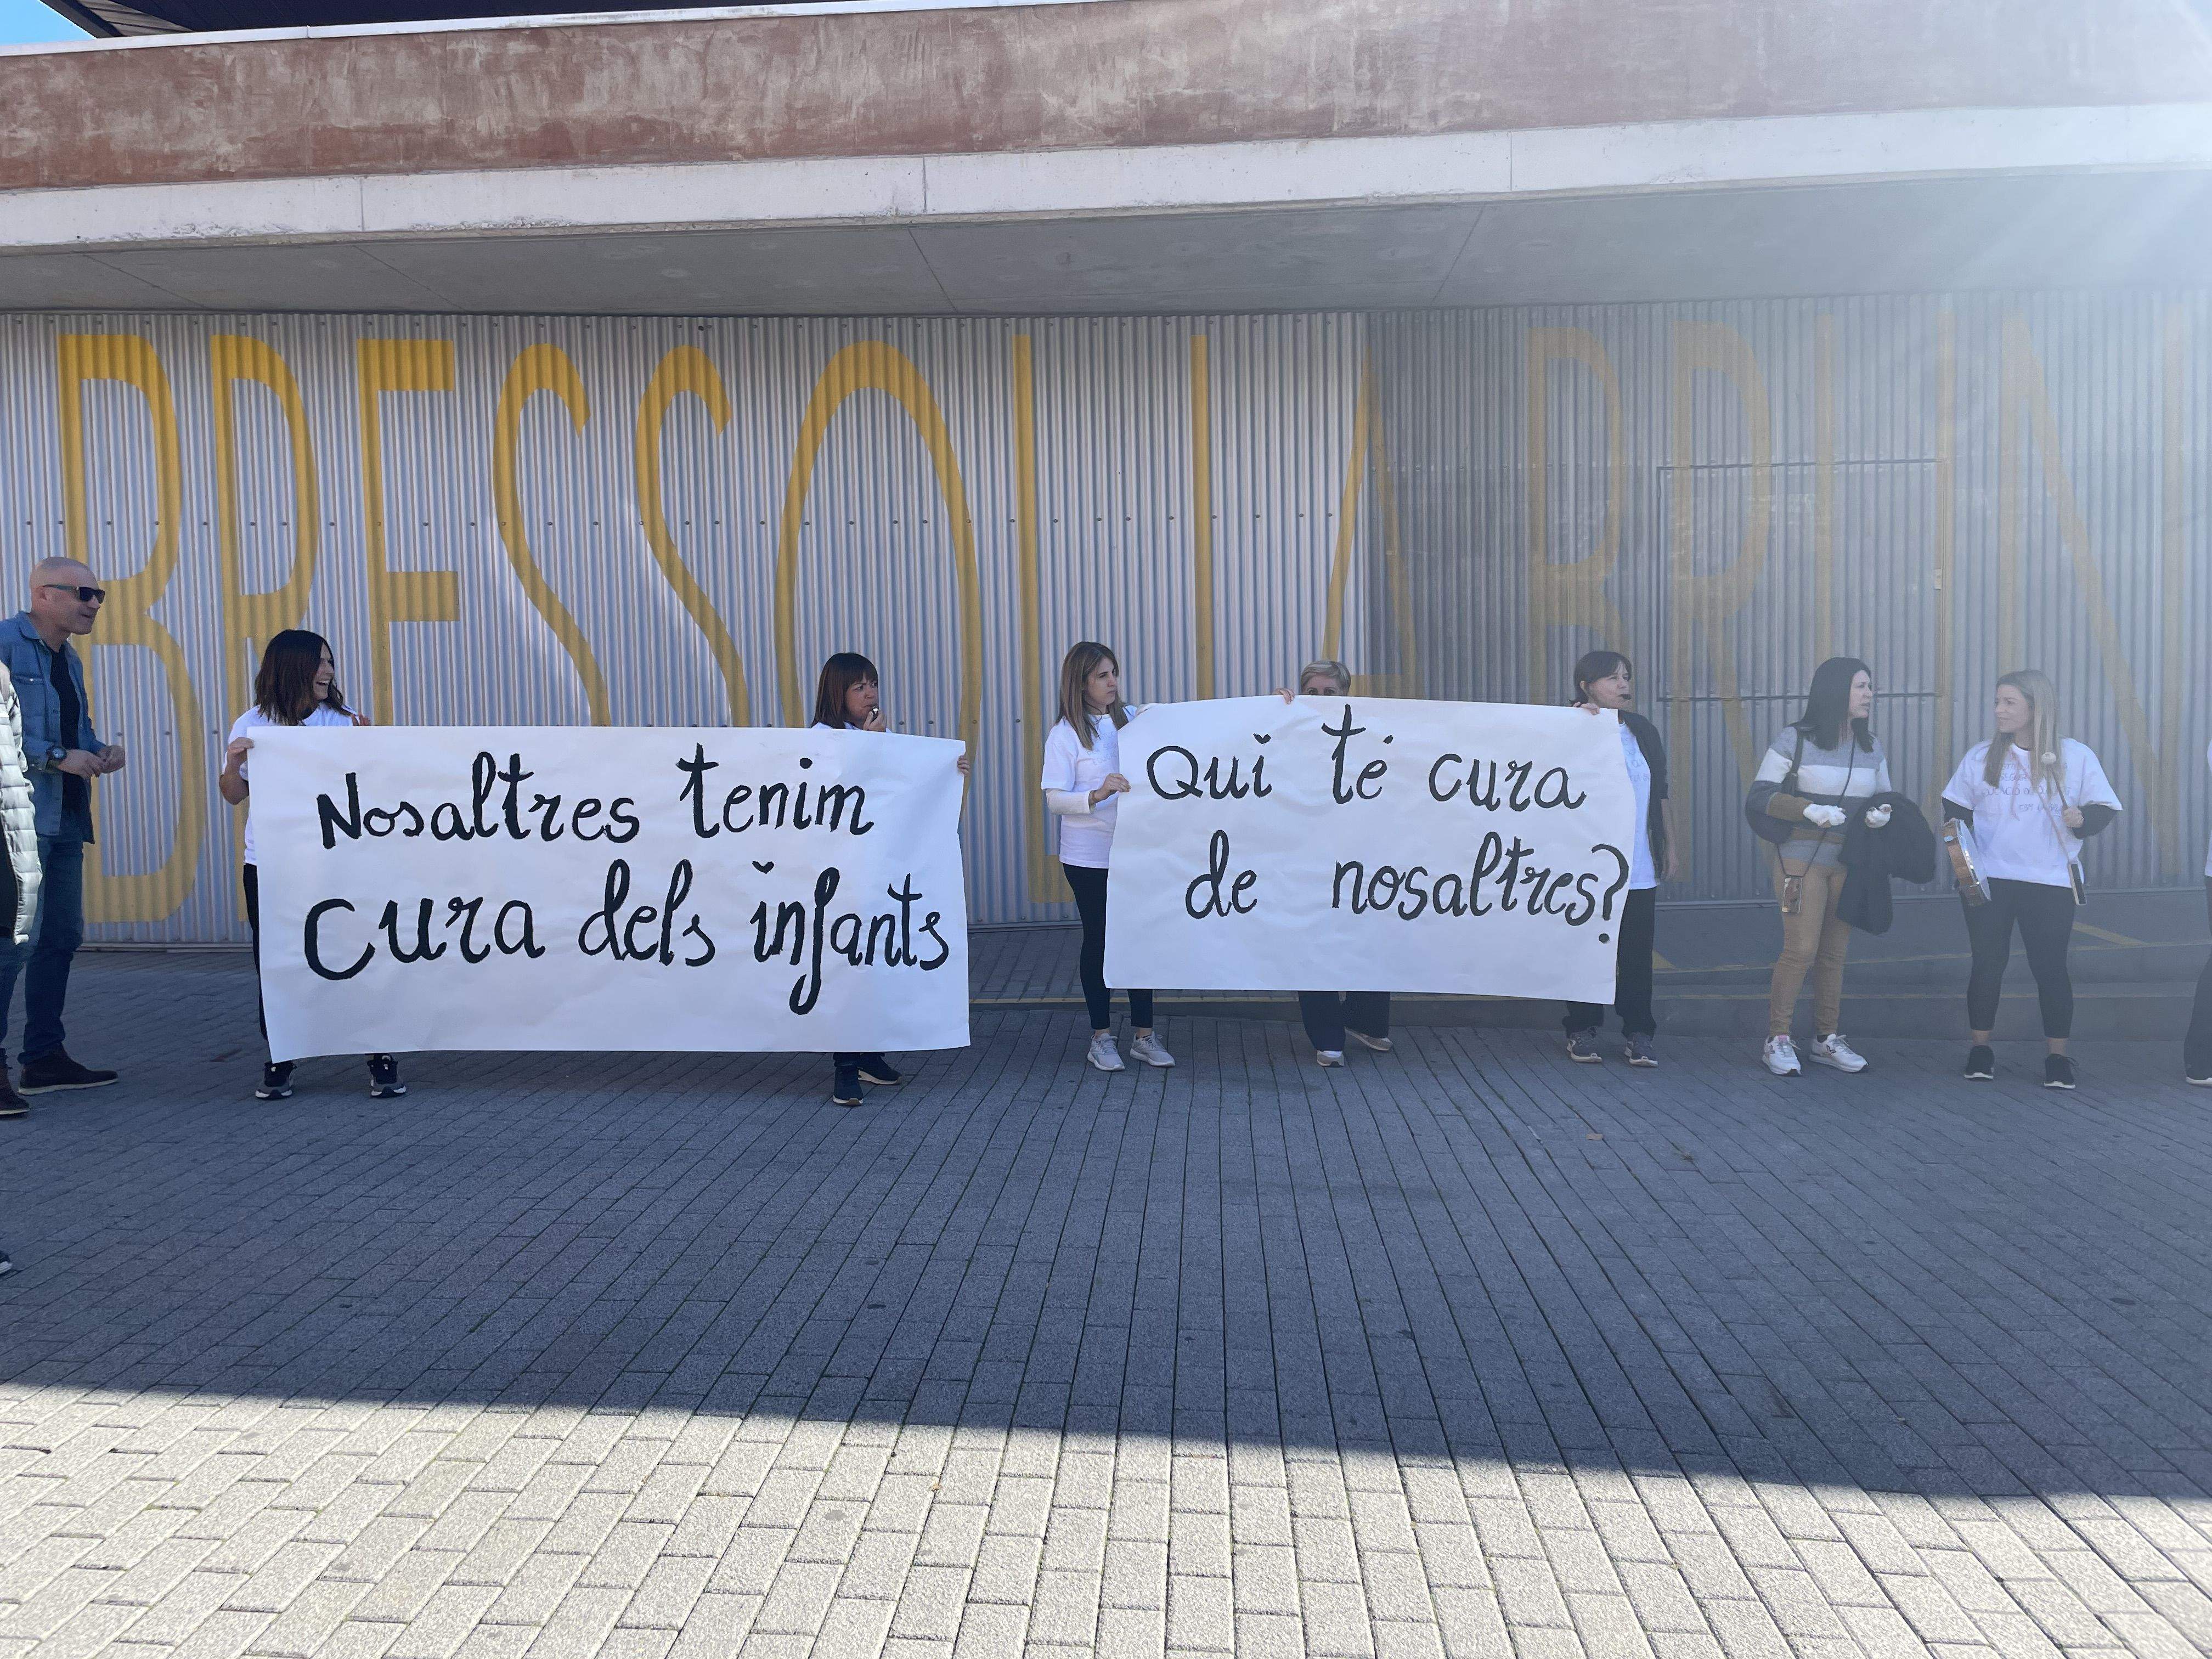 BRESSOL LA BRUN
Nosaltres tenim
cura dels infants
Qui té cura
de nosaltres?